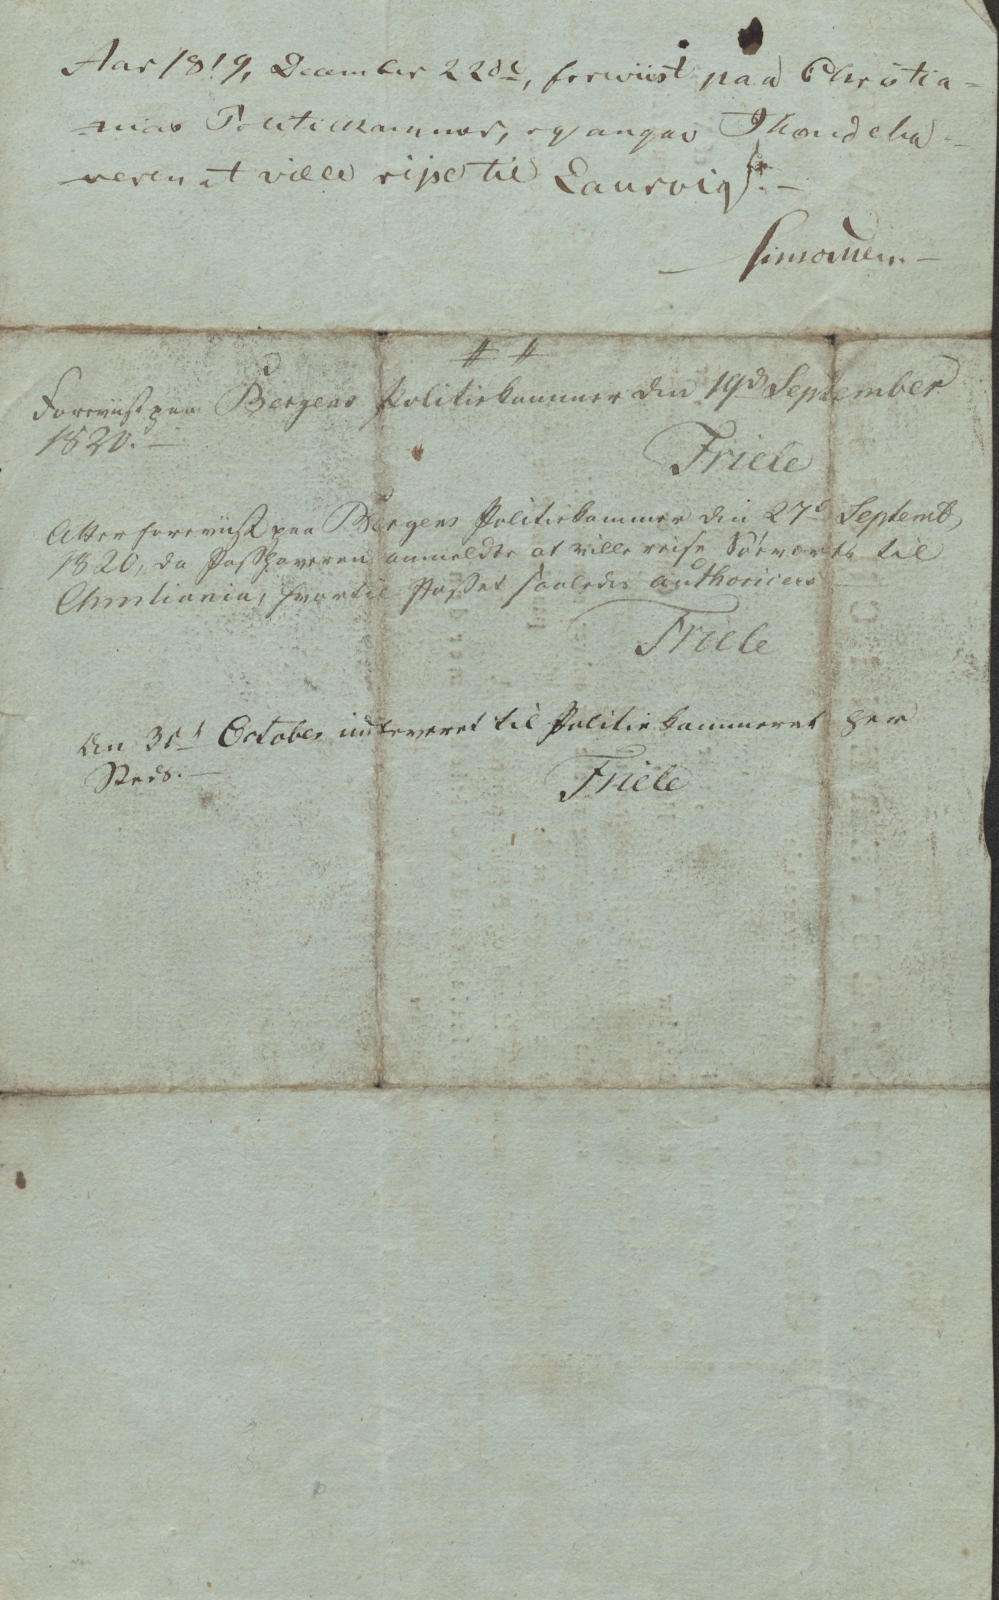 Aar 1819, December 22de, foreviist paa Christia-
nias Politiekammer, og angav Ihændeha-
veren at ville reise til Laurvig.-
Simonsen.-
Foreviist paa Bergens Politiekammer den 19d September
1820.-
Friele
Atter foreviist paa Bergens Politiekammer den 27d Septemb.
1820, da Passhaveren anmeldte at ville reise Søeværts til
Christiania, hvortil Passet saaledes authoriceres
Friele
den 30d October indleveret til Politiekammeret her
Steds.-
Friele